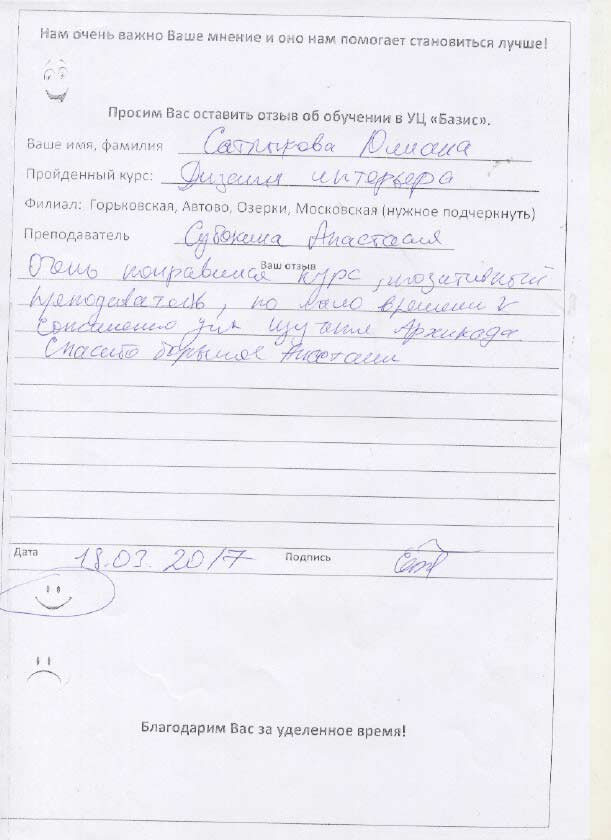 Нам очень важно Ваше мнение и оно нам помогает становиться лучше!
Просим Вас оставить отзыв об обучении в УЦ «Базис».
Ваше имя, фамилия Сатлыкова Юлиана
Пройденный курс: Дизайн интерьера
Филиал: Горьковская, Автово, Озерки, Московская (нужное подчеркнуть)
Преподаватель Субокина Анастасия
Ваш отзыв
Очень понравился курс, позитивный
преподаватель, но мало времени к
сожалению для изучения Архикада.
Спасибо большое Анастасии
Дата 18.03.2017 Подпись
Благодарим Вас за уделенное время!